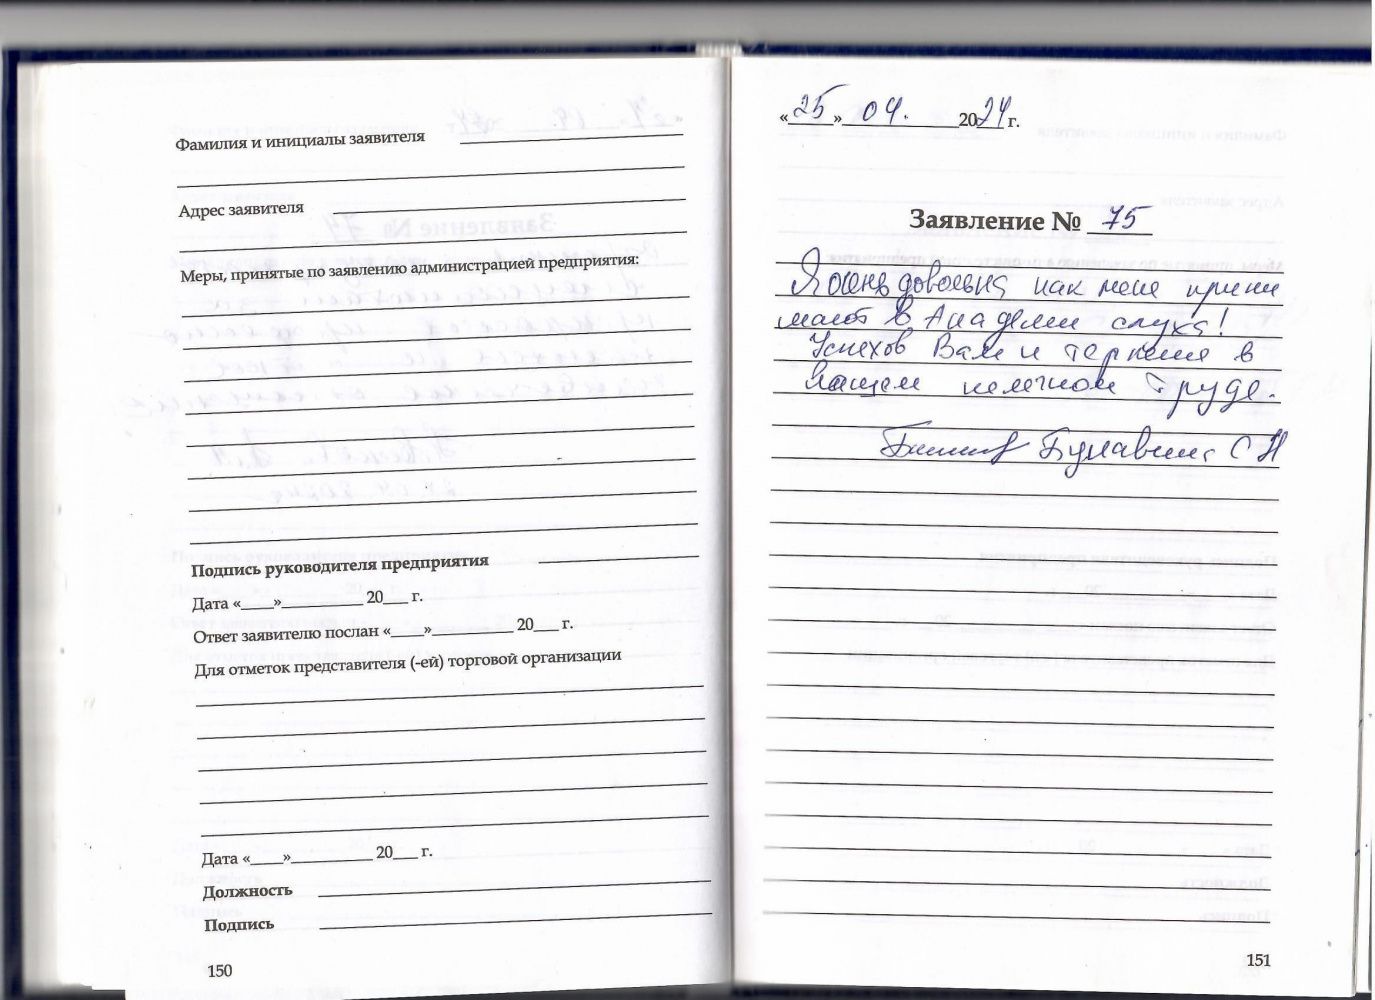 Фамилия и инициалы заявителя
Адрес заявителя
Меры, принятые по заявлению администрацией предприятия:
Подпись руководителя предприятия
Дата «____»__________ 20___ г.
Ответ заявителю послан «____»__________ 20___ г.
Для отметок представителя (-ей) торговой организации
Дата «____»__________ 20___ г.
Должность
Подпись
150
«25» 04. 2024 г.
Заявление № 75
Я очень довольна как меня прини
мают в Академии слуха!
Успехов Вам и терпения в
вашем нелегком труде.
С Н
151